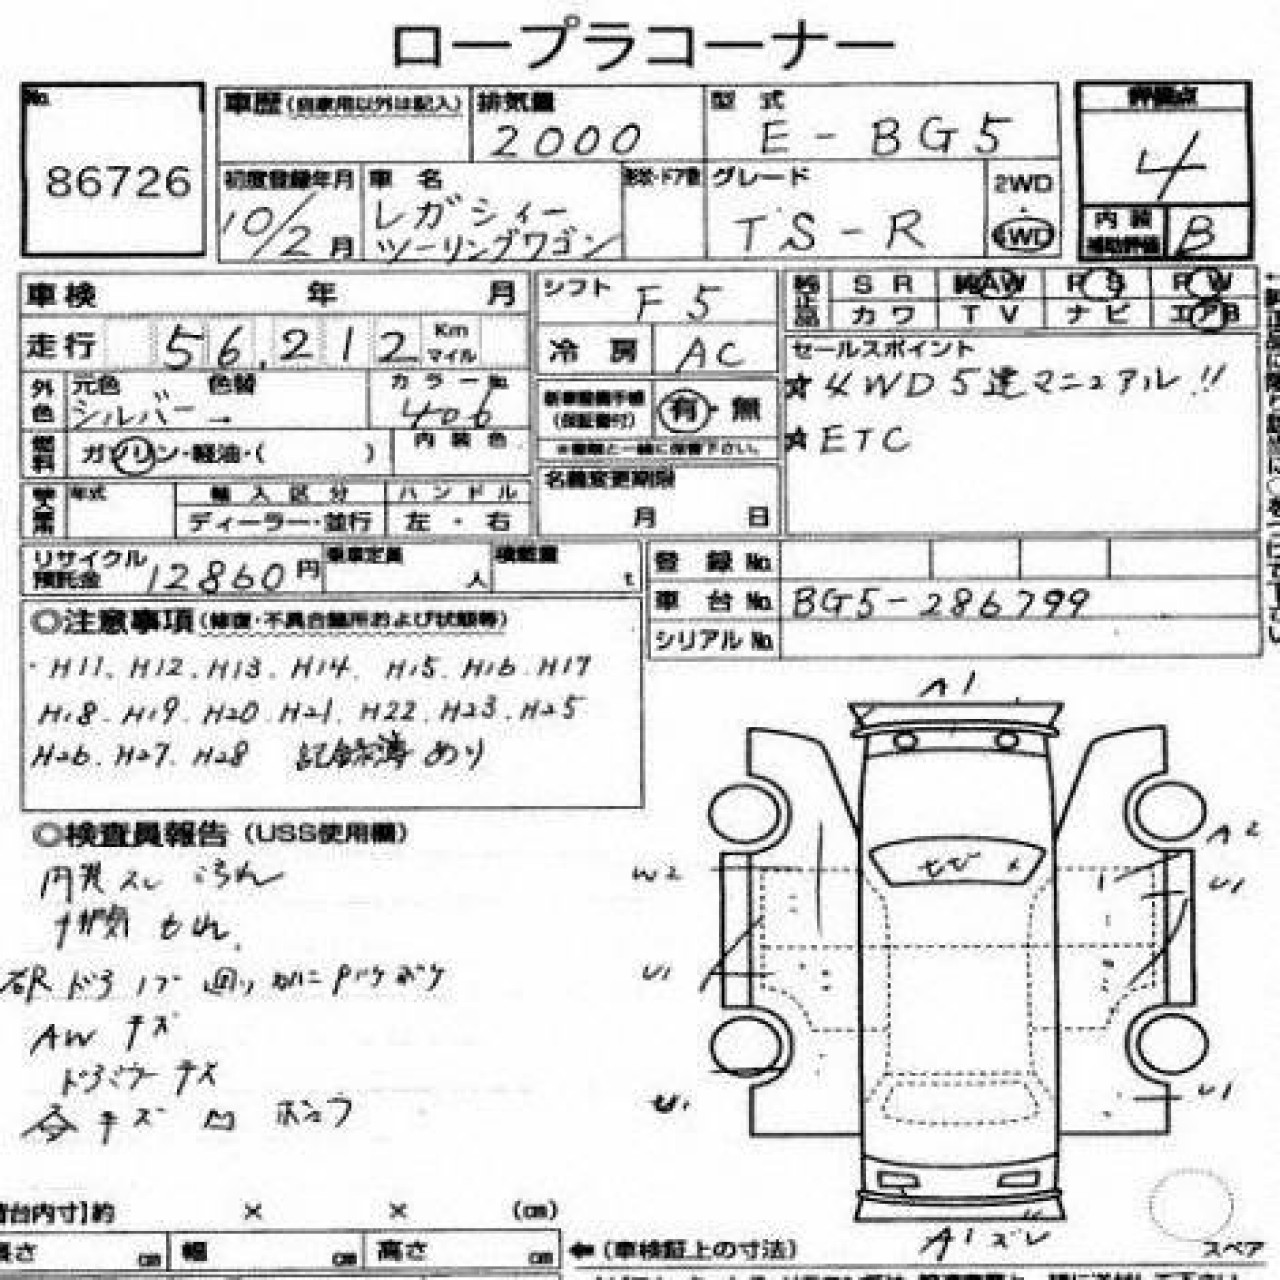 ロープラコーナー
No. 86726
車歴 (自家用以外は記入) 排気量 2000 型式 E-BG5 評価点 4
初度登録年月 10/2月 車名 レガシィー ツーリングワゴン 形状・ドア数 グレード TS-R 2WD・4WD 内装補助評価 B
車検 年 月 シフト F5 純正品 SR 純AW PS PW
カワ TV ナビ エアB
走行 56,212 Km マイル 冷房 AC セールスポイント
☆4WD5速マニュアル!!
☆ETC
外色 元色 シルバー → 色替 カラーNo. 406
新車整備手帳 (保証書付) 有・無
※書類と一緒に保管下さい。
燃料 ガソリン・軽油・( ) 内装色
名義変更期限 月 日
年式 輸入区分 ハンドル
ディーラー・並行 左・右
リサイクル預託金 12860円 乗車定員 人 積載量 t
登録No.
車台No. BG5-286799
シリアルNo.
◎注意事項 (修復・不具合箇所および状態等)
・H11、H12、H13、H14、H15、H16、H17
H18、H19、H20、H21、H22、H23、H25
H26、H27、H28 記録簿あり
◎検査員報告 (USS使用欄)
内装スレ 汚れ
排気もれ
AWキズ
ドアミラーキズ
キズ 凹
A1
W2
U1
U1
A2
U1
U1
A1ズレ
スペア
荷台内寸]約 × × (cm)
長さ cm 幅 cm 高さ cm ←(車検証上の寸法)